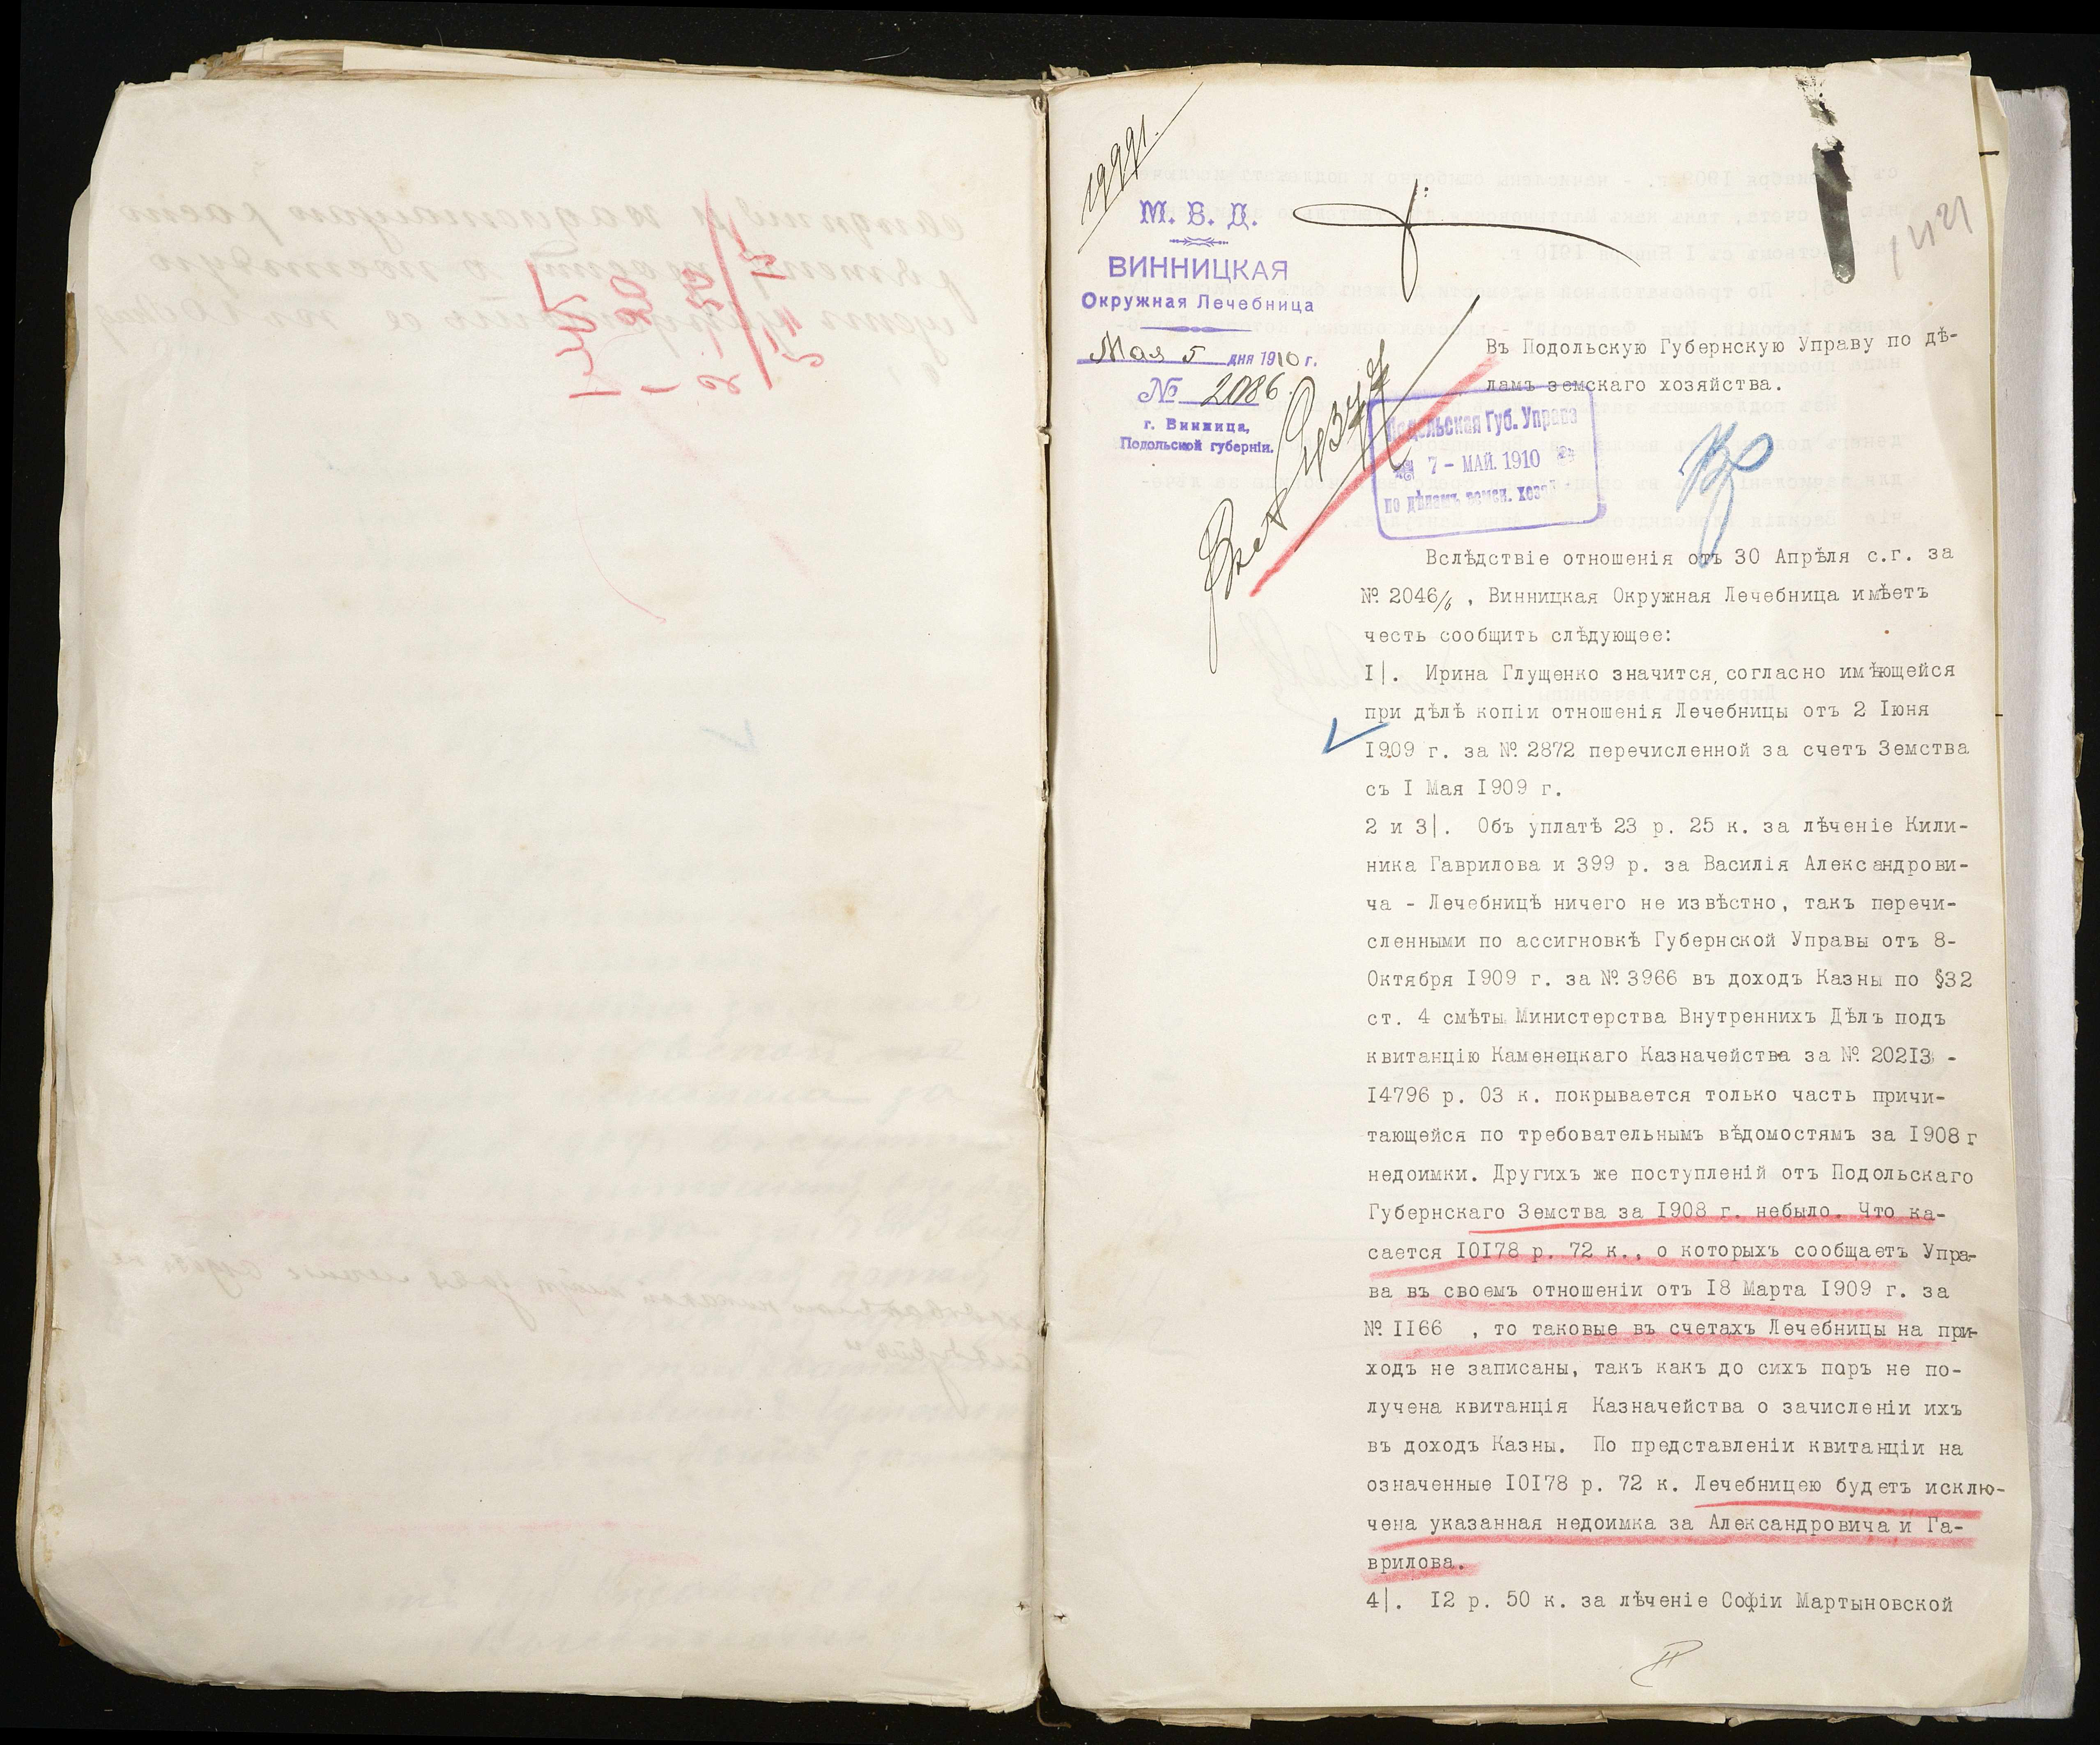 М. В. Д.
ВИННИЦКАЯ
Окружная Лечебница
Мая 5 дня 1910 г.
№ 2086
г. Винница,
Подольской губерніи.
Въ Подольскую Губернскую Управу по дѣ-
ламъ земскаго хозяйства.
Подольская Губ. Управа
7 - МАЙ. 1910
по дѣламъ земск. хозяй
Вслѣдствіе отношенія отъ 30 Апрѣля с.г. за
№ 2046/6 , Винницкая Окружная Лечебница имѣетъ
честь сообщить слѣдующее:
I|. Ирина Глущенко значится, согласно имѣющейся
при дѣлѣ копіи отношенія Лечебницы отъ 2 Іюня
I909 г. за № 2872 перечисленной за счетъ Земства
съ I Мая I909 г.
2 и 3|. Объ уплатѣ 23 р. 25 к. за лѣченіе Кили-
ника Гаврилова и 399 р. за Василія Александрови-
ча - Лечебницѣ ничего не извѣстно, такъ перечи-
сленными по ассигновкѣ Губернской Управы отъ 8-
Октября I909 г. за № 3966 въ доходъ Казны по §32
ст. 4 смѣты Министерства Внутреннихъ Дѣлъ подъ
квитанцію Каменецкаго Казначейства за № 202I3 -
I4796 р. 03 к. покрывается только часть причи-
тающейся по требовательнымъ вѣдомостямъ за I908 г
недоимки. Другихъ же поступленій отъ Подольскаго
Губернскаго Земства за I908 г. небыло. Что ка-
сается I0I78 р. 72 к., о которыхъ сообщаетъ Упра-
ва въ своемъ отношеніи отъ I8 Марта I909 г. за
№ II66 , то таковые въ счетахъ Лечебницы на при-
ходъ не записаны, такъ какъ до сихъ поръ не по-
лучена квитанція Казначейства о зачисленіи ихъ
въ доходъ Казны. По представленіи квитанціи на
означенные I0I78 р. 72 к. Лечебницею будетъ исклю-
чена указанная недоимка за Александровича и Га-
врилова.
4|. I2 р. 50 к. за лѣченіе Софіи Мартыновской